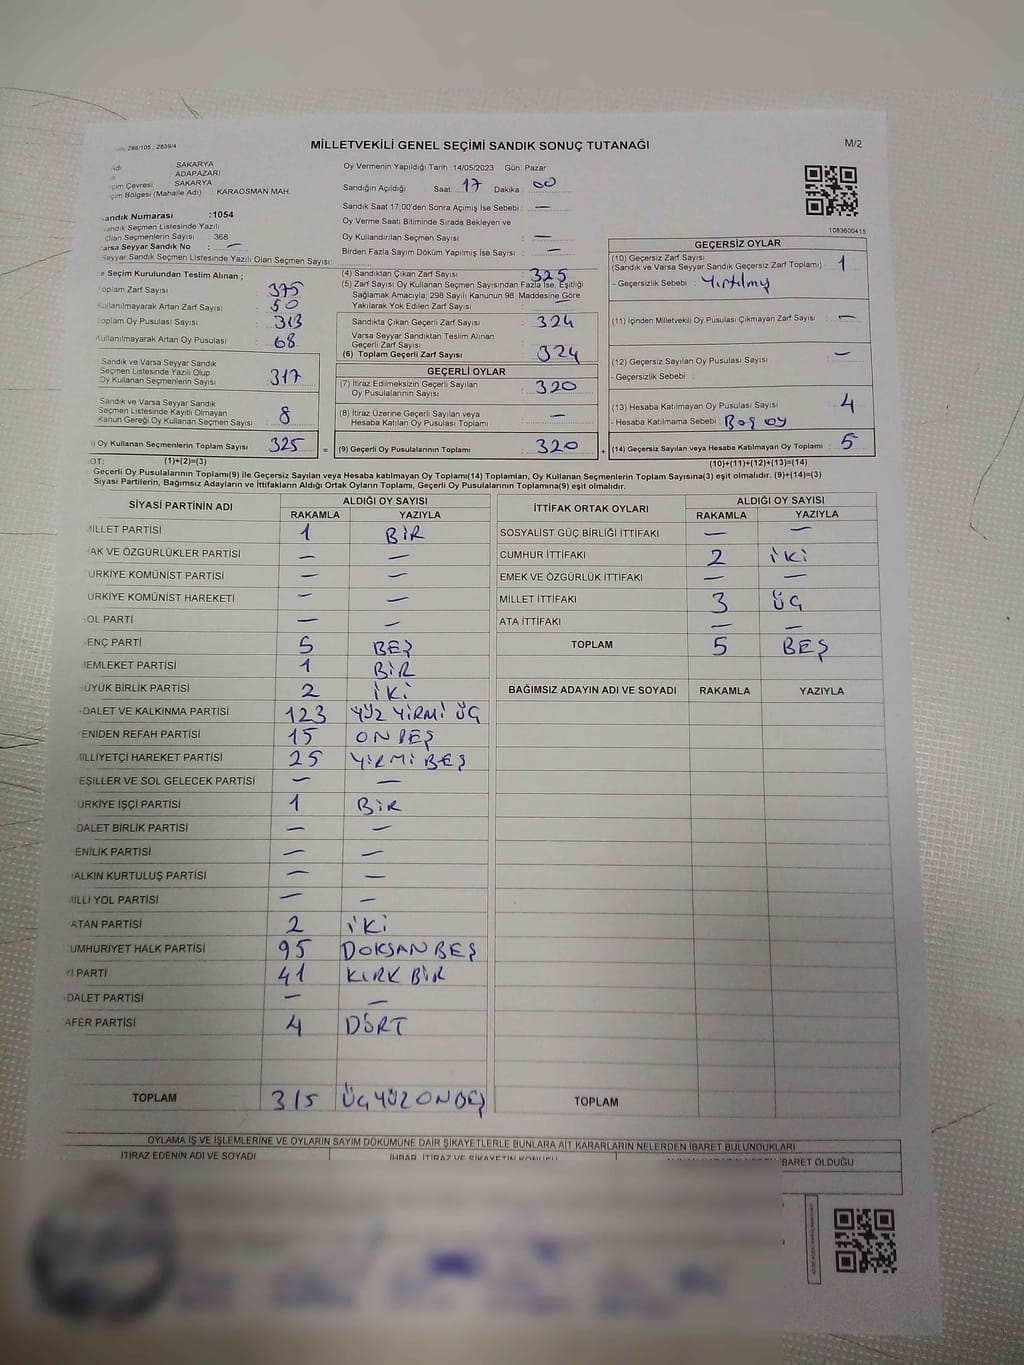 298/105 , 2839/4
MİLLETVEKİLİ GENEL SEÇİMİ SANDIK SONUÇ TUTANAĞI
M/2
: SAKARYA
: ADAPAZARI
çim Çevresi : SAKARYA
çim Bölgesi (Mahalle Adı) : KARAOSMAN MAH.
andık Numarası :1054
andık Seçmen Listesinde Yazılı
Olan Seçmenlerin Sayısı : 368
arsa Seyyar Sandık No : —
eyyar Sandık Seçmen Listesinde Yazılı Olan Seçmen Sayısı:
Oy Vermenin Yapıldığı Tarih :14/05/2023 Gün: Pazar
Sandığın Açıldığı Saat: 17 Dakika : 00
Sandık Saat 17:00'den Sonra Açımış İse Sebebi : —
Oy Verme Saati Bitiminde Sırada Bekleyen ve
Oy Kullandırılan Seçmen Sayısı : —
Birden Fazla Sayım Döküm Yapılmış İse Sayısı : —
1083600415
e Seçim Kurulundan Teslim Alınan ;
oplam Zarf Sayısı : 375
ullanılmayarak Artan Zarf Sayısı : 50
oplam Oy Pusulası Sayısı : 313
ullanılmayarak Artan Oy Pusulası : 68
Sandık ve Varsa Seyyar Sandık
Seçmen Listesinde Yazılı Olup
Oy Kullanan Seçmenlerin Sayısı : 317
Sandık ve Varsa Seyyar Sandık
Seçmen Listesinde Kayıtlı Olmayan
Kanun Gereği Oy Kullanan Seçmen Sayısı : 8
) Oy Kullanan Seçmenlerin Toplam Sayısı : 325 =
(4) Sandıktan Çıkan Zarf Sayısı : 325
(5) Zarf Sayısı Oy Kullanan Seçmen Sayısından Fazla İse, Eşitliği
Sağlamak Amacıyla; 298 Sayılı Kanunun 98. Maddesine Göre
Yakılarak Yok Edilen Zarf Sayısı : —
Sandıkta Çıkan Geçerli Zarf Sayısı : 324
Varsa Seyyar Sandıktan Teslim Alınan
Geçerli Zarf Sayısı
(6) Toplam Geçerli Zarf Sayısı : 324
GEÇERLİ OYLAR
(7) İtiraz Edilmeksizin Geçerli Sayılan
Oy Pusulasının Sayısı : 320
(8) İtiraz Üzerine Geçerli Sayılan veya
Hesaba Katılan Oy Pusulası Toplamı : —
(9) Geçerli Oy Pusulalarının Toplamı : 320 +
GEÇERSİZ OYLAR
(10) Geçersiz Zarf Sayısı
(Sandık ve Varsa Seyyar Sandık Geçersiz Zarf Toplamı) : 1
- Geçersizlik Sebebi : Yırtılmış
(11) İçinden Milletvekili Oy Pusulası Çıkmayan Zarf Sayısı : —
(12) Geçersiz Sayılan Oy Pusulası Sayısı : —
- Geçersizlik Sebebi :
(13) Hesaba Katılmayan Oy Pusulası Sayısı : 4
- Hesaba Katılmama Sebebi : Boş oy
(14) Geçersiz Sayılan veya Hesaba Katılmayan Oy Toplamı : 5
OT: (1)+(2)=(3)
(10)+(11)+(12)+(13)=(14)
Geçerli Oy Pusulalarının Toplamı(9) ile Geçersiz Sayılan veya Hesaba katılmayan Oy Toplamı(14) Toplamları, Oy Kullanan Seçmenlerin Toplam Sayısına(3) eşit olmalıdır. (9)+(14)=(3)
Siyasi Partilerin, Bağımsız Adayların ve İttifakların Aldığı Ortak Oyların Toplamı, Geçerli Oy Pusulalarının Toplamına(9) eşit olmalıdır.
SİYASİ PARTİNİN ADI ALDIĞI OY SAYISI
RAKAMLA YAZIYLA
İLLET PARTİSİ 1 BİR
AK VE ÖZGÜRLÜKLER PARTİSİ — —
ÜRKİYE KOMÜNİST PARTİSİ — —
ÜRKİYE KOMÜNİST HAREKETİ — —
OL PARTİ — —
ENÇ PARTİ 5 BEŞ
EMLEKET PARTİSİ 1 BİR
ÜYÜK BİRLİK PARTİSİ 2 İKİ
DALET VE KALKINMA PARTİSİ 123 YÜZ YİRMİ ÜÇ
ENİDEN REFAH PARTİSİ 15 ONBEŞ
İLLİYETÇİ HAREKET PARTİSİ 25 YİRMİ BEŞ
EŞİLLER VE SOL GELECEK PARTİSİ — —
ÜRKİYE İŞÇİ PARTİSİ 1 BİR
DALET BİRLİK PARTİSİ — —
ENİLİK PARTİSİ — —
ALKIN KURTULUŞ PARTİSİ — —
İLLİ YOL PARTİSİ — —
ATAN PARTİSİ 2 İKİ
UMHURİYET HALK PARTİSİ 95 DOKSAN BEŞ
Yİ PARTİ 41 KIRK BİR
DALET PARTİSİ — —
AFER PARTİSİ 4 DÖRT
TOPLAM 315 ÜÇ YÜZ ONBEŞ
İTTİFAK ORTAK OYLARI ALDIĞI OY SAYISI
RAKAMLA YAZIYLA
SOSYALİST GÜÇ BİRLİĞİ İTTİFAKI — —
CUMHUR İTTİFAKI 2 İKİ
EMEK VE ÖZGÜRLÜK İTTİFAKI — —
MİLLET İTTİFAKI 3 ÜÇ
ATA İTTİFAKI — —
TOPLAM 5 BEŞ
BAĞIMSIZ ADAYIN ADI VE SOYADI RAKAMLA YAZIYLA
TOPLAM
OYLAMA İŞ VE İŞLEMLERİNE VE OYLARIN SAYIM DÖKÜMÜNE DAİR ŞİKAYETLERLE BUNLARA AİT KARARLARIN NELERDEN İBARET BULUNDUKLARI
İTİRAZ EDENİN ADI VE SOYADI İHBAR, İTİRAZ VE ŞİKAYETİN KONUSU İBARET OLDUĞU